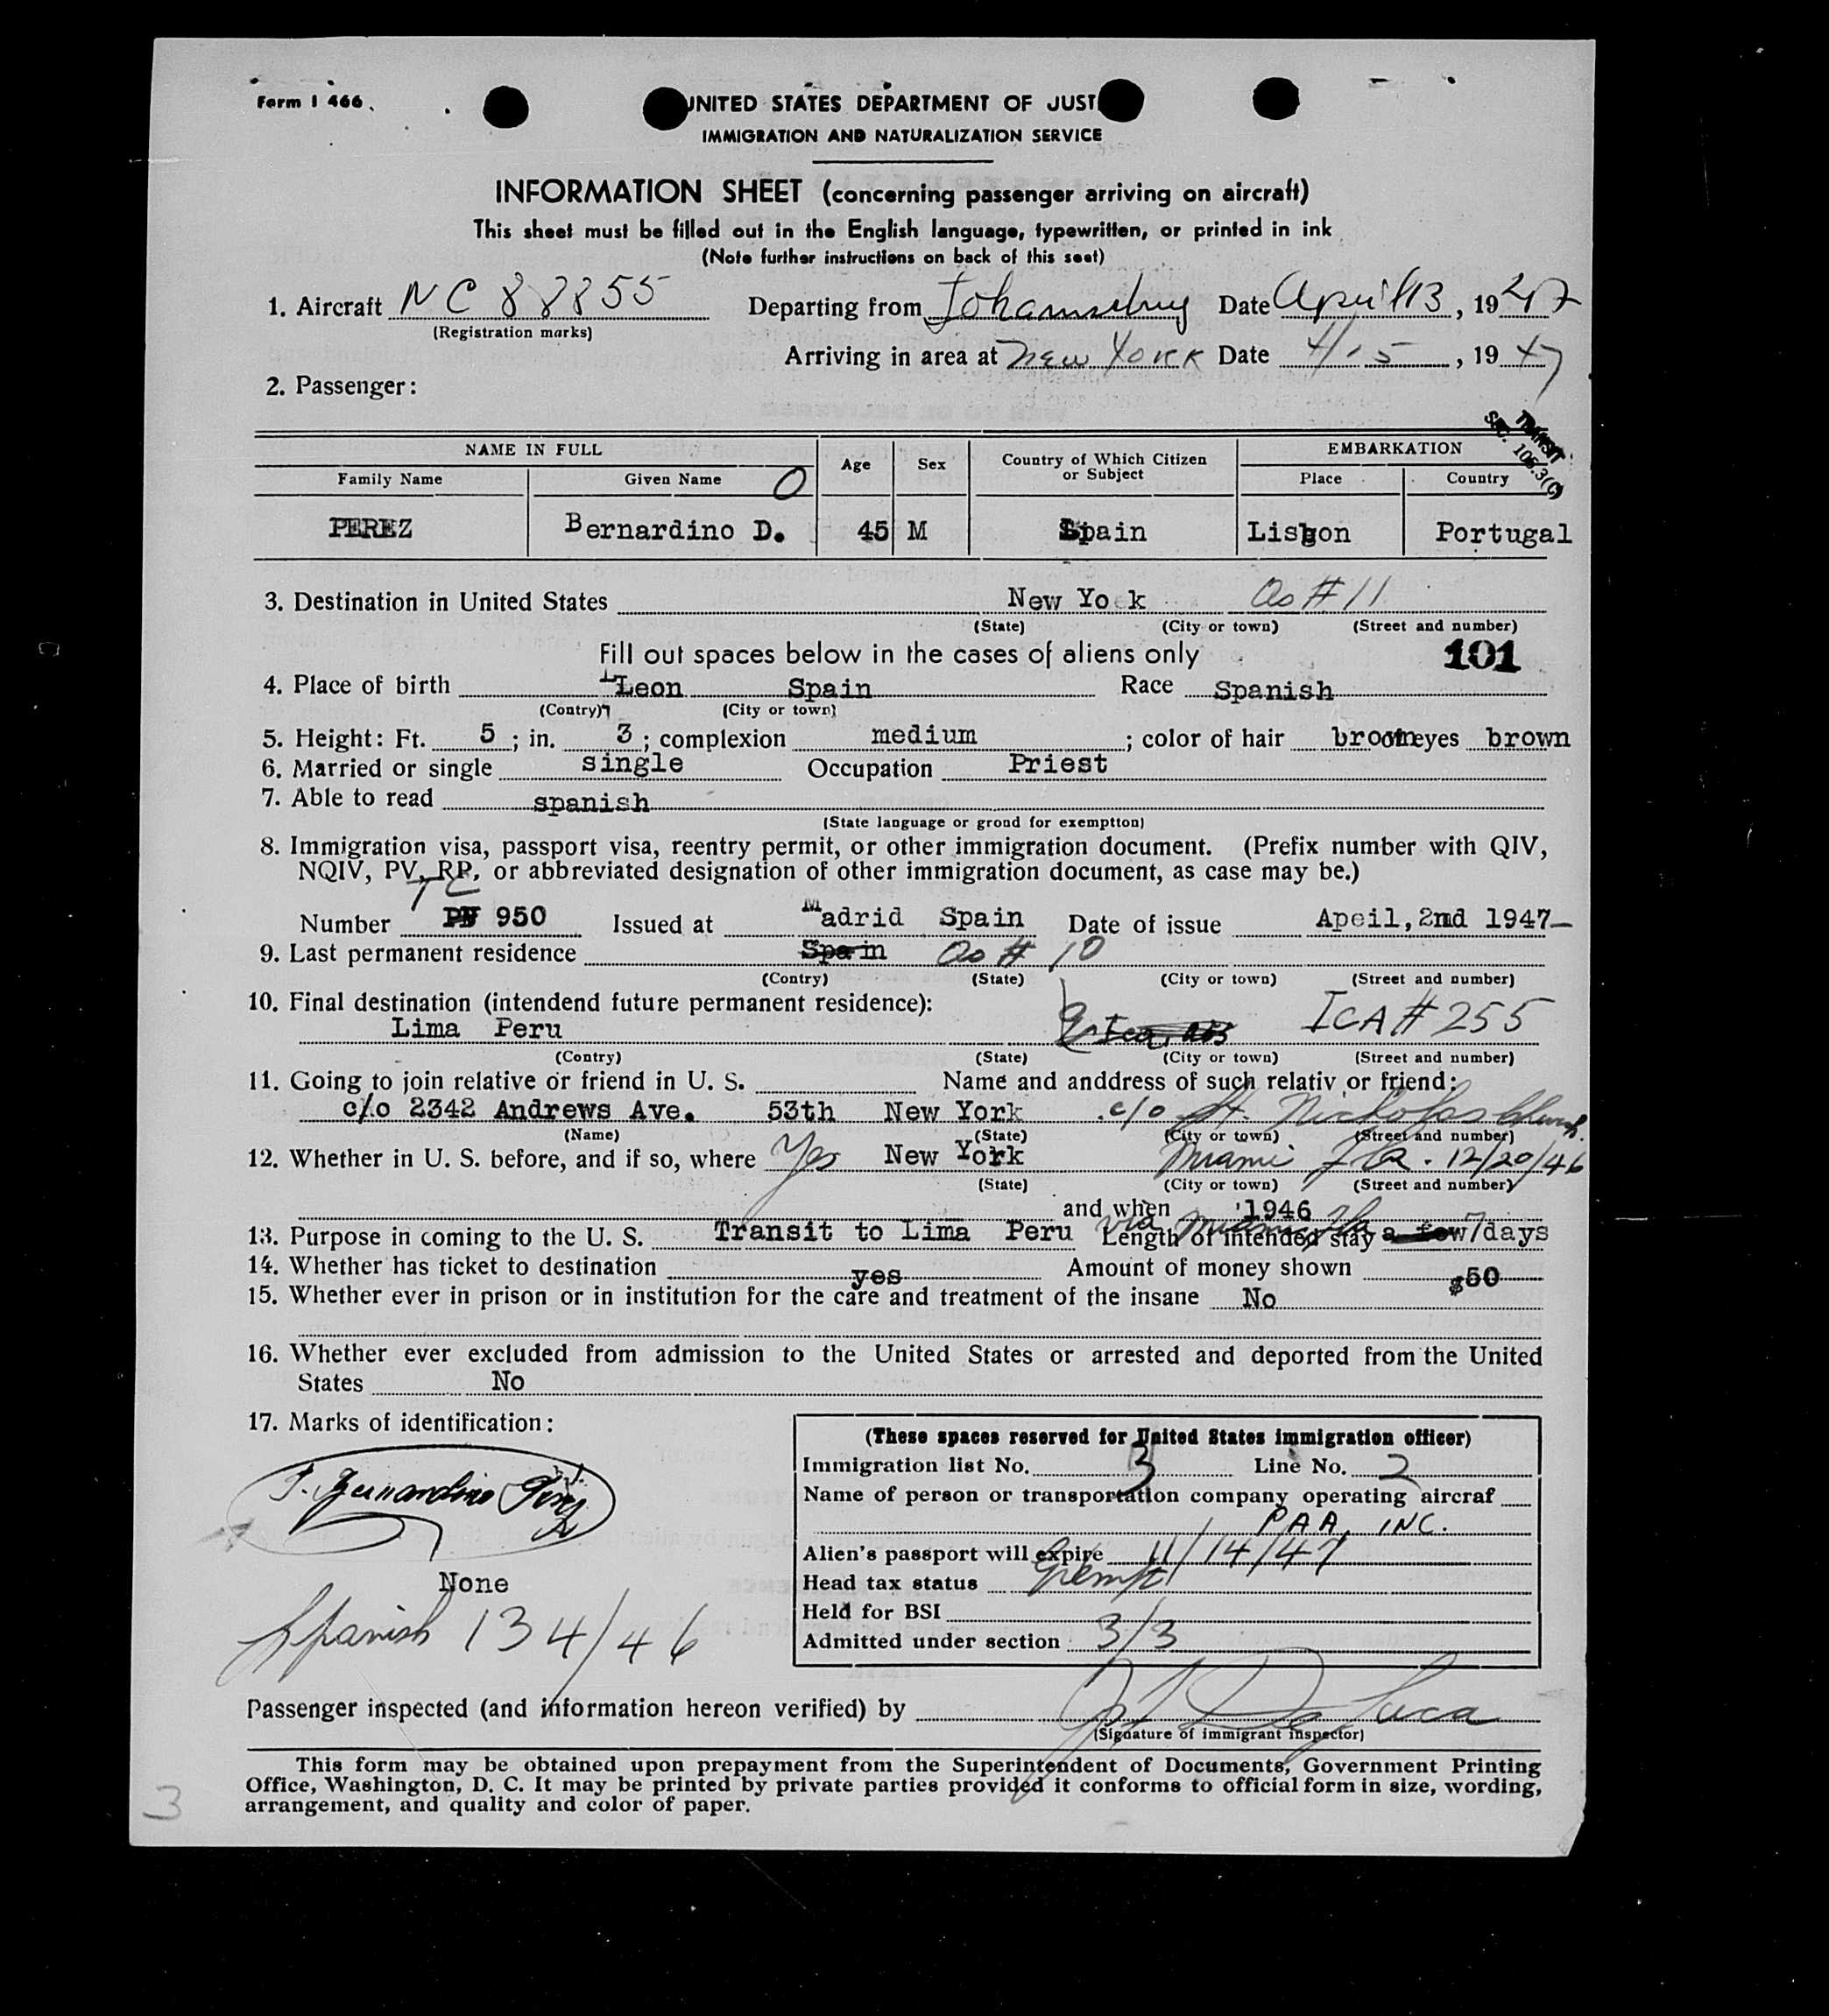 Form I 466
UNITED STATES DEPARTMENT OF JUST
IMMIGRATION AND NATURALIZATION SERVICE
INFORMATION SHEET (concerning passenger arriving on aircraft)
This sheet must be filled out in the English language, typewritten, or printed in ink
(Note further instructions on back of this seet)
1. Aircraft NC 88855 Departing from Date April 13, 1947
(Registration marks)
Arriving in area at New York Date 4/15, 1947
2. Passenger:
TRANSIT
SEC. 106.3(C)
NAME IN FULL Age Sex Country of Which Citizen or Subject EMBARKATION
Family Name Given Name O Place Country
PEREZ Bernardino D. 45 M Spain Lisbon Portugal
3. Destination in United States New Yo k as #11
(State) (City or town) (Street and number)
Fill out spaces below in the cases of aliens only 101
4. Place of birth Leon Spain Race Spanish
(Contry) (City or town)
5. Height: Ft. 5; in. 3; complexion medium; color of hair brown eyes brown
6. Married or single single Occupation Priest
7. Able to read spanish
(State language or grond for exemptton)
8. Immigration visa, passport visa, reentry permit, or other immigration document. (Prefix number with QIV,
NQIV, PV, RP, or abbreviated designation of other immigration document, as case may be.)
TC
Number PV 950 Issued at Madrid Spain Date of issue Apeil, 2nd 1947
9. Last permanent residence Spain as # 10
(Contry) (State) (City or town) (Street and number)
10. Final destination (intendend future permanent residence):
Lima Peru ICA # 255
(Contry) (State) (City or town) (Street and number)
11. Going to join relative or friend in U. S. Name and anddress of such relativ or friend:
c/o 2342 Andrews Ave. 53th New York c/o St. Nickolas Church
(Name) (State) (City or town) (Street and number)
12. Whether in U. S. before, and if so, where Yes New York Miami Fla. 12/20/46
(State) (City or town) (Street and number)
and when 1946
13. Purpose in coming to the U. S. Transit to Lima Peru via Miami Fla Length of intended stay a few 7 days
14. Whether has ticket to destination yes Amount of money shown $50
15. Whether ever in prison or in institution for the care and treatment of the insane No
16. Whether ever excluded from admission to the United States or arrested and deported from the United
States No
17. Marks of identification:
None
Spanish 134/46
(These spaces reserved for United States immigration officer)
Immigration list No. 3 Line No. 2
Name of person or transportation company operating aircraf
PAA, INC.
Alien's passport will expire 11/14/47
Head tax status Exempt
Held for BSI
Admitted under section 3/3
Passenger inspected (and information hereon verified) by
(Signature of immigrant inspector)
This form may be obtained upon prepayment from the Superintendent of Documents, Government Printing
Office, Washington, D. C. It may be printed by private parties provided it conforms to official form in size, wording,
arrangement, and quality and color of paper.
3